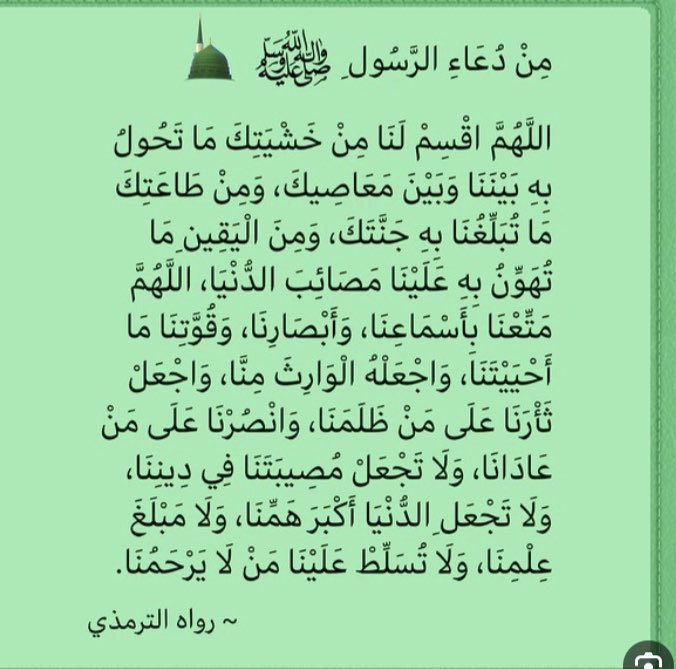 مِنْ دُعَاءِ الرَّسُولِ ﷺ
اللَّهُمَّ اقْسِمْ لَنَا مِنْ خَشْيَتِكَ مَا تَحُولُ
بِهِ بَيْنَنَا وَبَيْنَ مَعَاصِيكَ، وَمِنْ طَاعَتِكَ
مَا تُبَلِّغُنَا بِهِ جَنَّتَكَ، وَمِنَ الْيَقِينِ مَا
تُهَوِّنُ بِهِ عَلَيْنَا مَصَائِبَ الدُّنْيَا، اللَّهُمَّ
مَتِّعْنَا بِأَسْمَاعِنَا، وَأَبْصَارِنَا، وَقُوَّتِنَا مَا
أَحْيَيْتَنَا، وَاجْعَلْهُ الْوَارِثَ مِنَّا، وَاجْعَلْ
ثَأْرَنَا عَلَى مَنْ ظَلَمَنَا، وَانْصُرْنَا عَلَى مَنْ
عَادَانَا، وَلَا تَجْعَلْ مُصِيبَتَنَا فِي دِينِنَا،
وَلَا تَجْعَلِ الدُّنْيَا أَكْبَرَ هَمِّنَا، وَلَا مَبْلَغَ
عِلْمِنَا، وَلَا تُسَلِّطْ عَلَيْنَا مَنْ لَا يَرْحَمُنَا.
~ رواه الترمذي